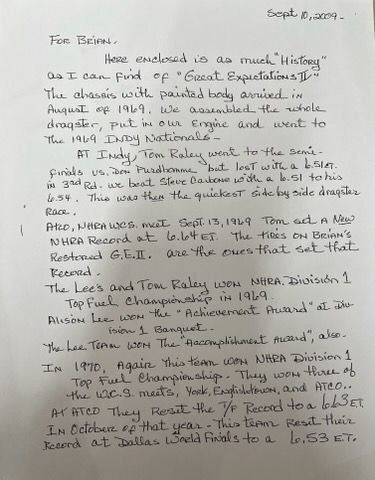 Sept 10, 2009-
For Brian.
Here enclosed is as much "History"
as I can find of "Great Expectations II"
The chassis with painted body arrived in
August of 1969. We assembled the whole
dragster, put in our Engine and went to
the 1969 INDY Nationals-
AT Indy, Tom Raley went to the semi-
finals vs. Don Prudhomme but lost with a 6.51 ET.
in 3rd Rd. we beat Steve Carbone with a 6.51 to his
6.54. This was then the quickest side by side dragster
Race.
Atco, NHRA W.C.S. meet Sept. 13, 1969 Tom set a New
NHRA Record at 6.64 ET. The tires on Brian's
Restored G.E.II. are the ones that set that
Record.
The Lee's and Tom Raley won NHRA, Division 1
Top Fuel Championship in 1969.
Alison Lee won the "Achievement Award" at Div-
ision 1 Banquet.
The Lee Team won the "Accomplishment Award", also.
In 1970, Again this team won NHRA Division 1
Top Fuel Championship. They won three of
the W.C.S. meets, York, Englishtown, and Atco..
At ATCO They Reset the T/F Record to a 6.63 ET.
In October of that year- This team Reset their
Record at Dallas World Finals to a 6.53 E.T.